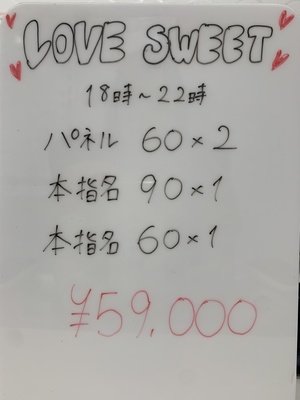 LOVE SWEET
18時~22時
パネル 60×2
本指名 90×1
本指名 60×1
¥59.000